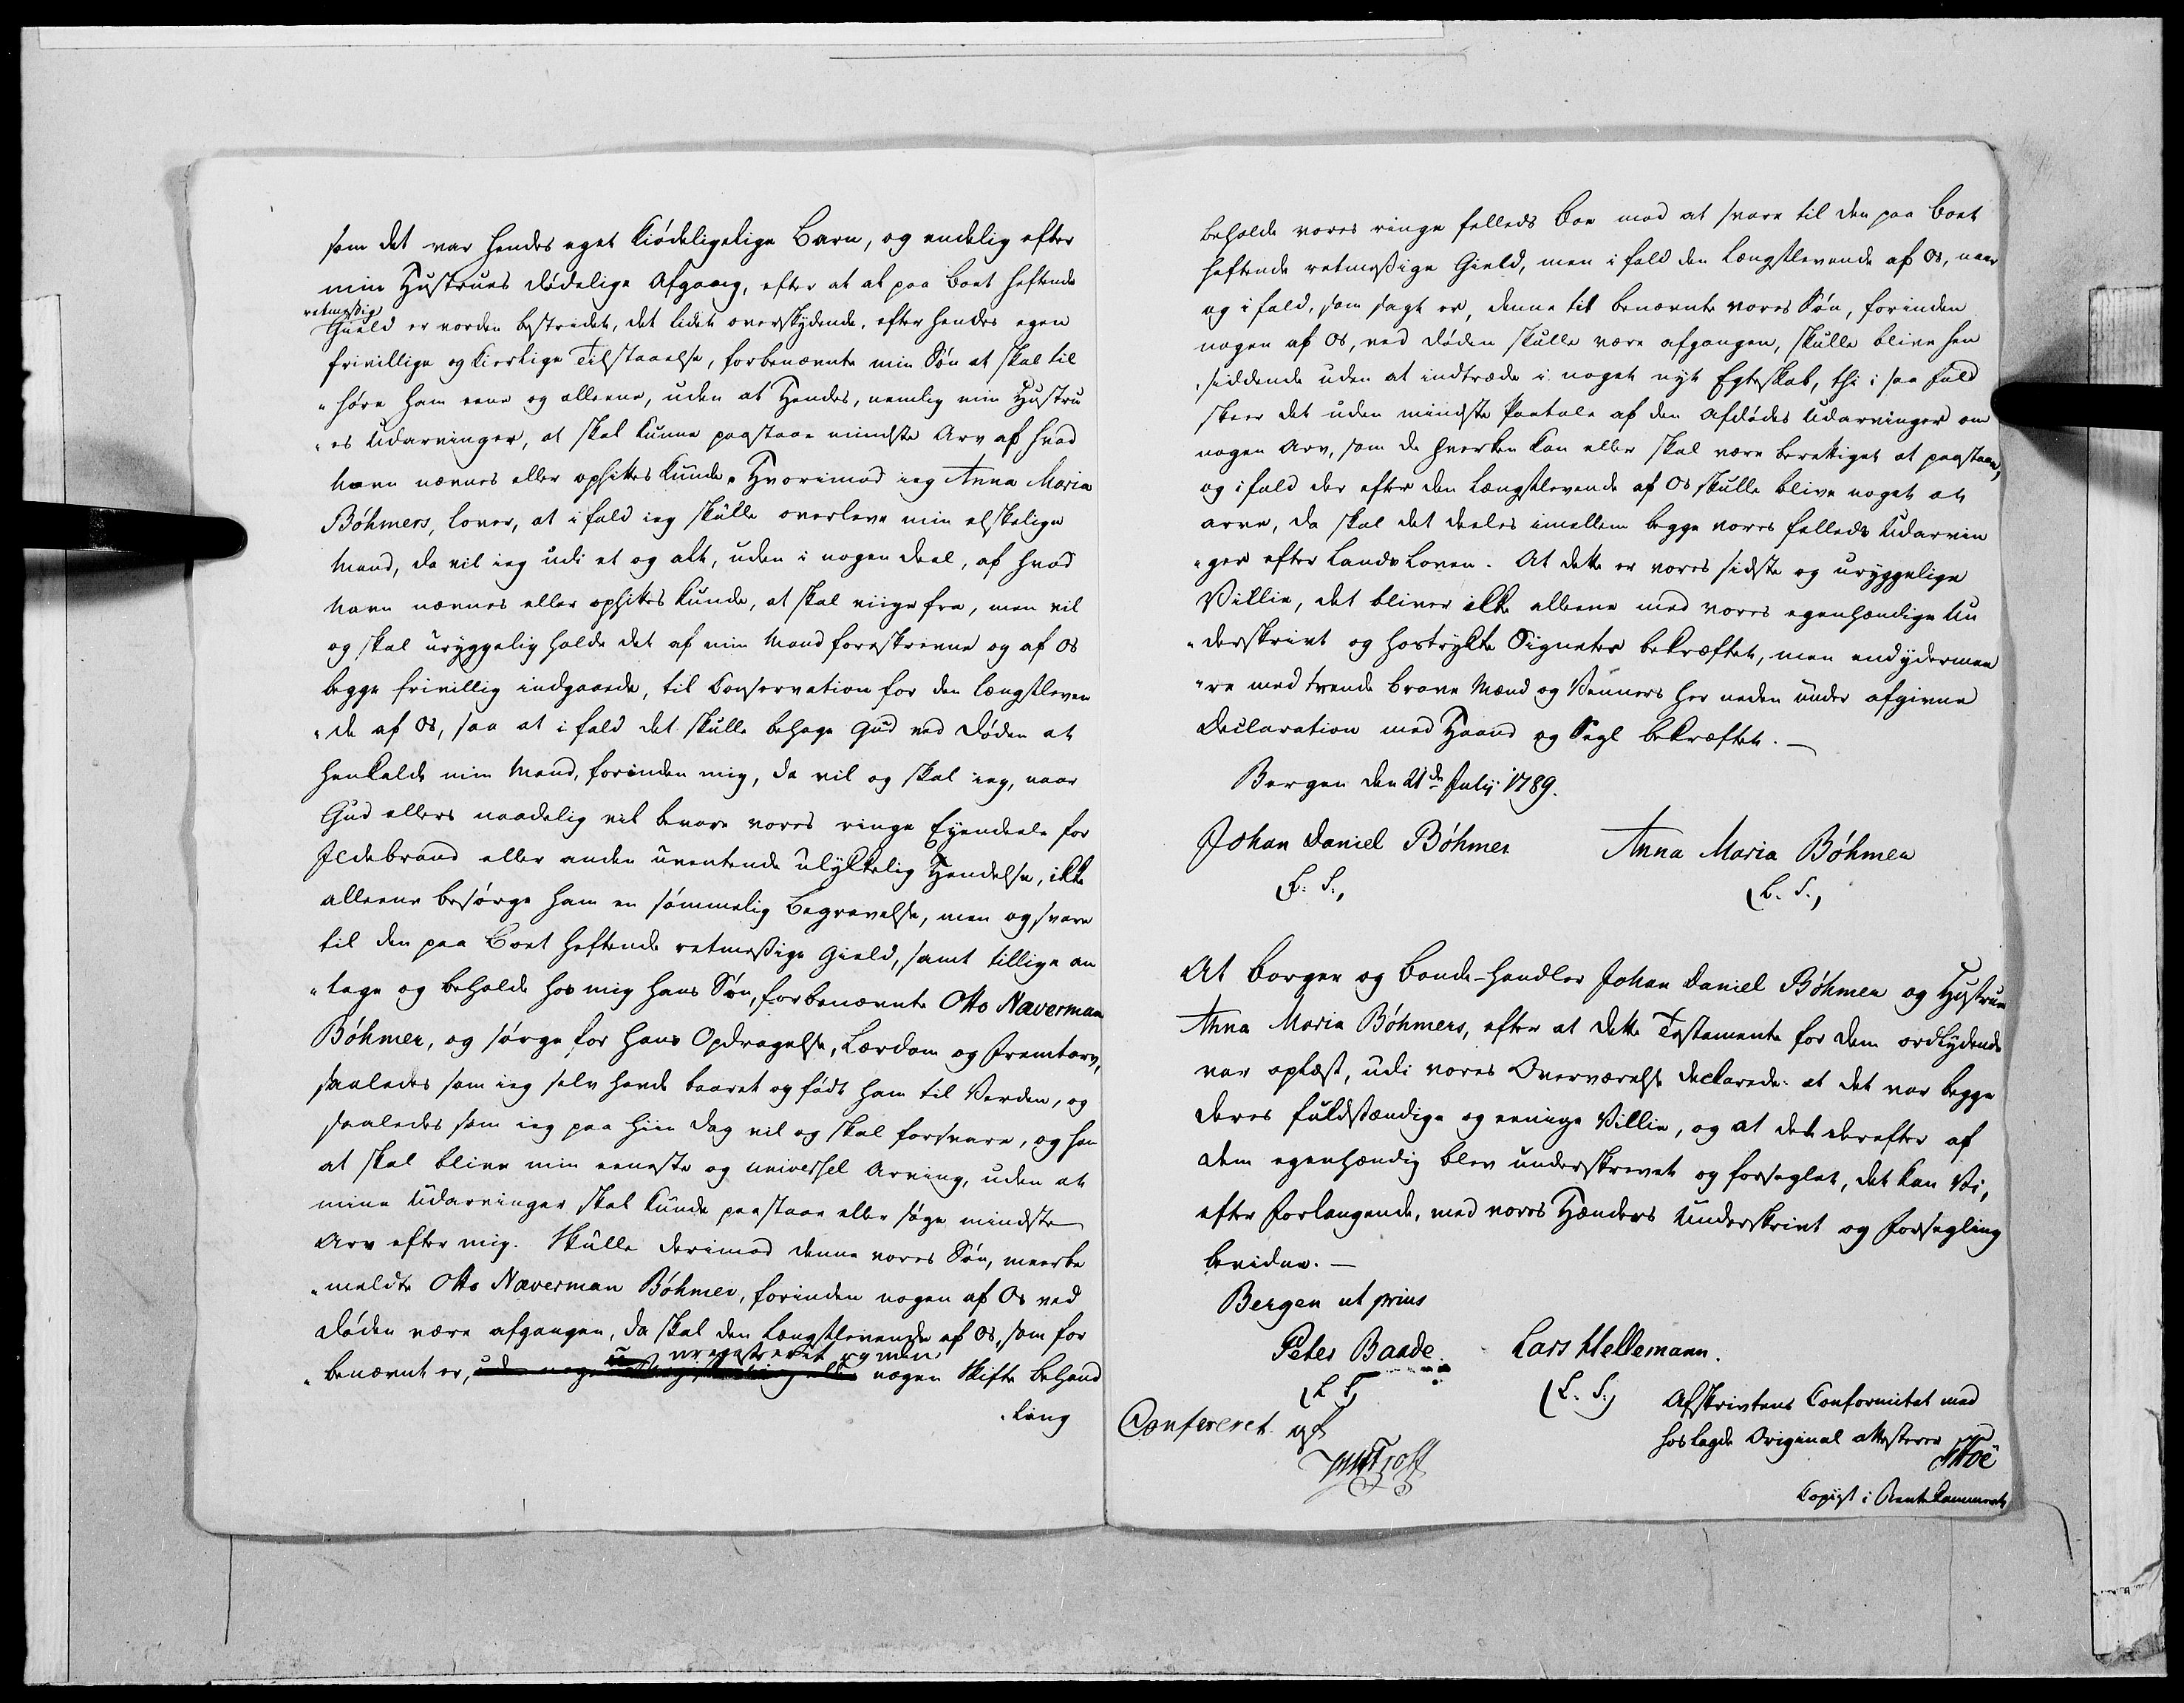 som det var hendes eget kiödeligelige Barn, og endelig efter
min Hustrues dödelige Afgang, efter at al paa Boet heftende
retmæssig
Gield er vorden bestridet, det lidet overskydende, efter hendes egen
frivillige og kierlige Tilstaaelse, forbenævnte min Sön at skal til
"höre ham eene og alleene, uden at Hendes, nemlig min Hustru
"es Udarvinger, at skal kunne paastaae mindste Arv af hvad
Navn nævnes eller opsittes kunde. Hvorimod ieg Anna Maria
Böhmers, lover, at i fald ieg skulle overleve min elskelige
Mand, da vil ieg udi et og alt, uden i nogen deel, af hvad
Navn nævnes eller opsittes kunde, at skal viige fra, men vil
og skal uryggelig holde det af min Mand foreskrevne og af Os
begge frivillig indgaaede, til Conservation for den længstleven
"de af Os, saa at i fald det skulle behage Gud ved Döden at
henkalde min Mand, forinden mig, da vil og skal ieg, naar
Gud ellers naadelig vil bevare vores ringe Eyendeele for
Ildebrand eller anden uventende ulykkelig Hendelse, ikke
alleene besörge ham en sömmelig Begravelse, men og svare
til den paa Boet heftende retmæssige Gield, samt tillige an
"tage og beholde hos mig hans Sön, forbenævnte Otto Næverman
Böhmer, og sörge for hans Opdragelse, Lærdom og Fremtarv,
saaledes som ieg selv havde baaret og födt ham til Verden, og
saaledes som ieg paa hiin Dag vil og skal forsvare, og han
at skal blive min eeneste og universel Arving, uden at
mine Udarvinger skal kunde paastaae eller söge mindste
Arv efter mig. Skulle derimod denne vores Sön, meerbe
"meldte Otto Næverman Böhmer, forinden nogen af Os ved
Döden være afgangen, da skal den Længstlevende af Os, som for
"benævnt er, uregistreret og uden nogen Skifte Behand
"ling
beholde vores ringe felleds Boe mod at svare til den paa Boet
heftende retmæssige Gield, men i fald den Længstlevende af Os, naar
og i fald, som sagt er, denne til benævnte vores Sön, forinden
nogen af Os, ved Döden skulle være afgangen, skulle blive hen
"siddende uden at indtræde i noget nyt Egteskab, thi i saa fald
skeer det uden mindste Paatale af den Afdödes Udarvinger om
nogen Arv, som de hverken kan eller skal være berettiget at paastaae,
og i fald der efter den Længstlevende af Os skulle blive noget at
arve, da skal det deeles imellem begge vores felleds Udarvin
"ger efter Lands Loven. At dette er vores sidste og uryggelige
Villie, det bliver ikke alleene med vores egenhændige Un
"derskrivt og hostrykte Signeter bekræftet, men endydermee
"re med tvende brave Mænd og Venners her neden under afgivne
Declaration med Haand og Segl bekræftet. —
Bergen den 21de Julij 1789.
Johan Daniel Böhmer Anna Maria Böhmer
(L. S.) (L. S.)
At Borger og Bonde-Handler Johan Daniel Böhmer og Hustrue
Anna Maria Böhmers, efter at dette Testamente for dem ordlydende
var oplæst, udi vores Overværelse declarede: at det var begge
deres fuldstændige og eenige Villie, og at det derefter af
dem egenhændig blev underskrevet og forseglet, det kan Vi,
efter Forlangende, med vores Hænders Underskrivt og Forsegling
bevidne. —
Bergen ut prius
Peter Baade. Lars Hellemann.
(L. S.) (L. S.)
Afskrivtens Conformitet med
hoslagde Original attesterer
Confereret af
Copiist i Rentekammeret